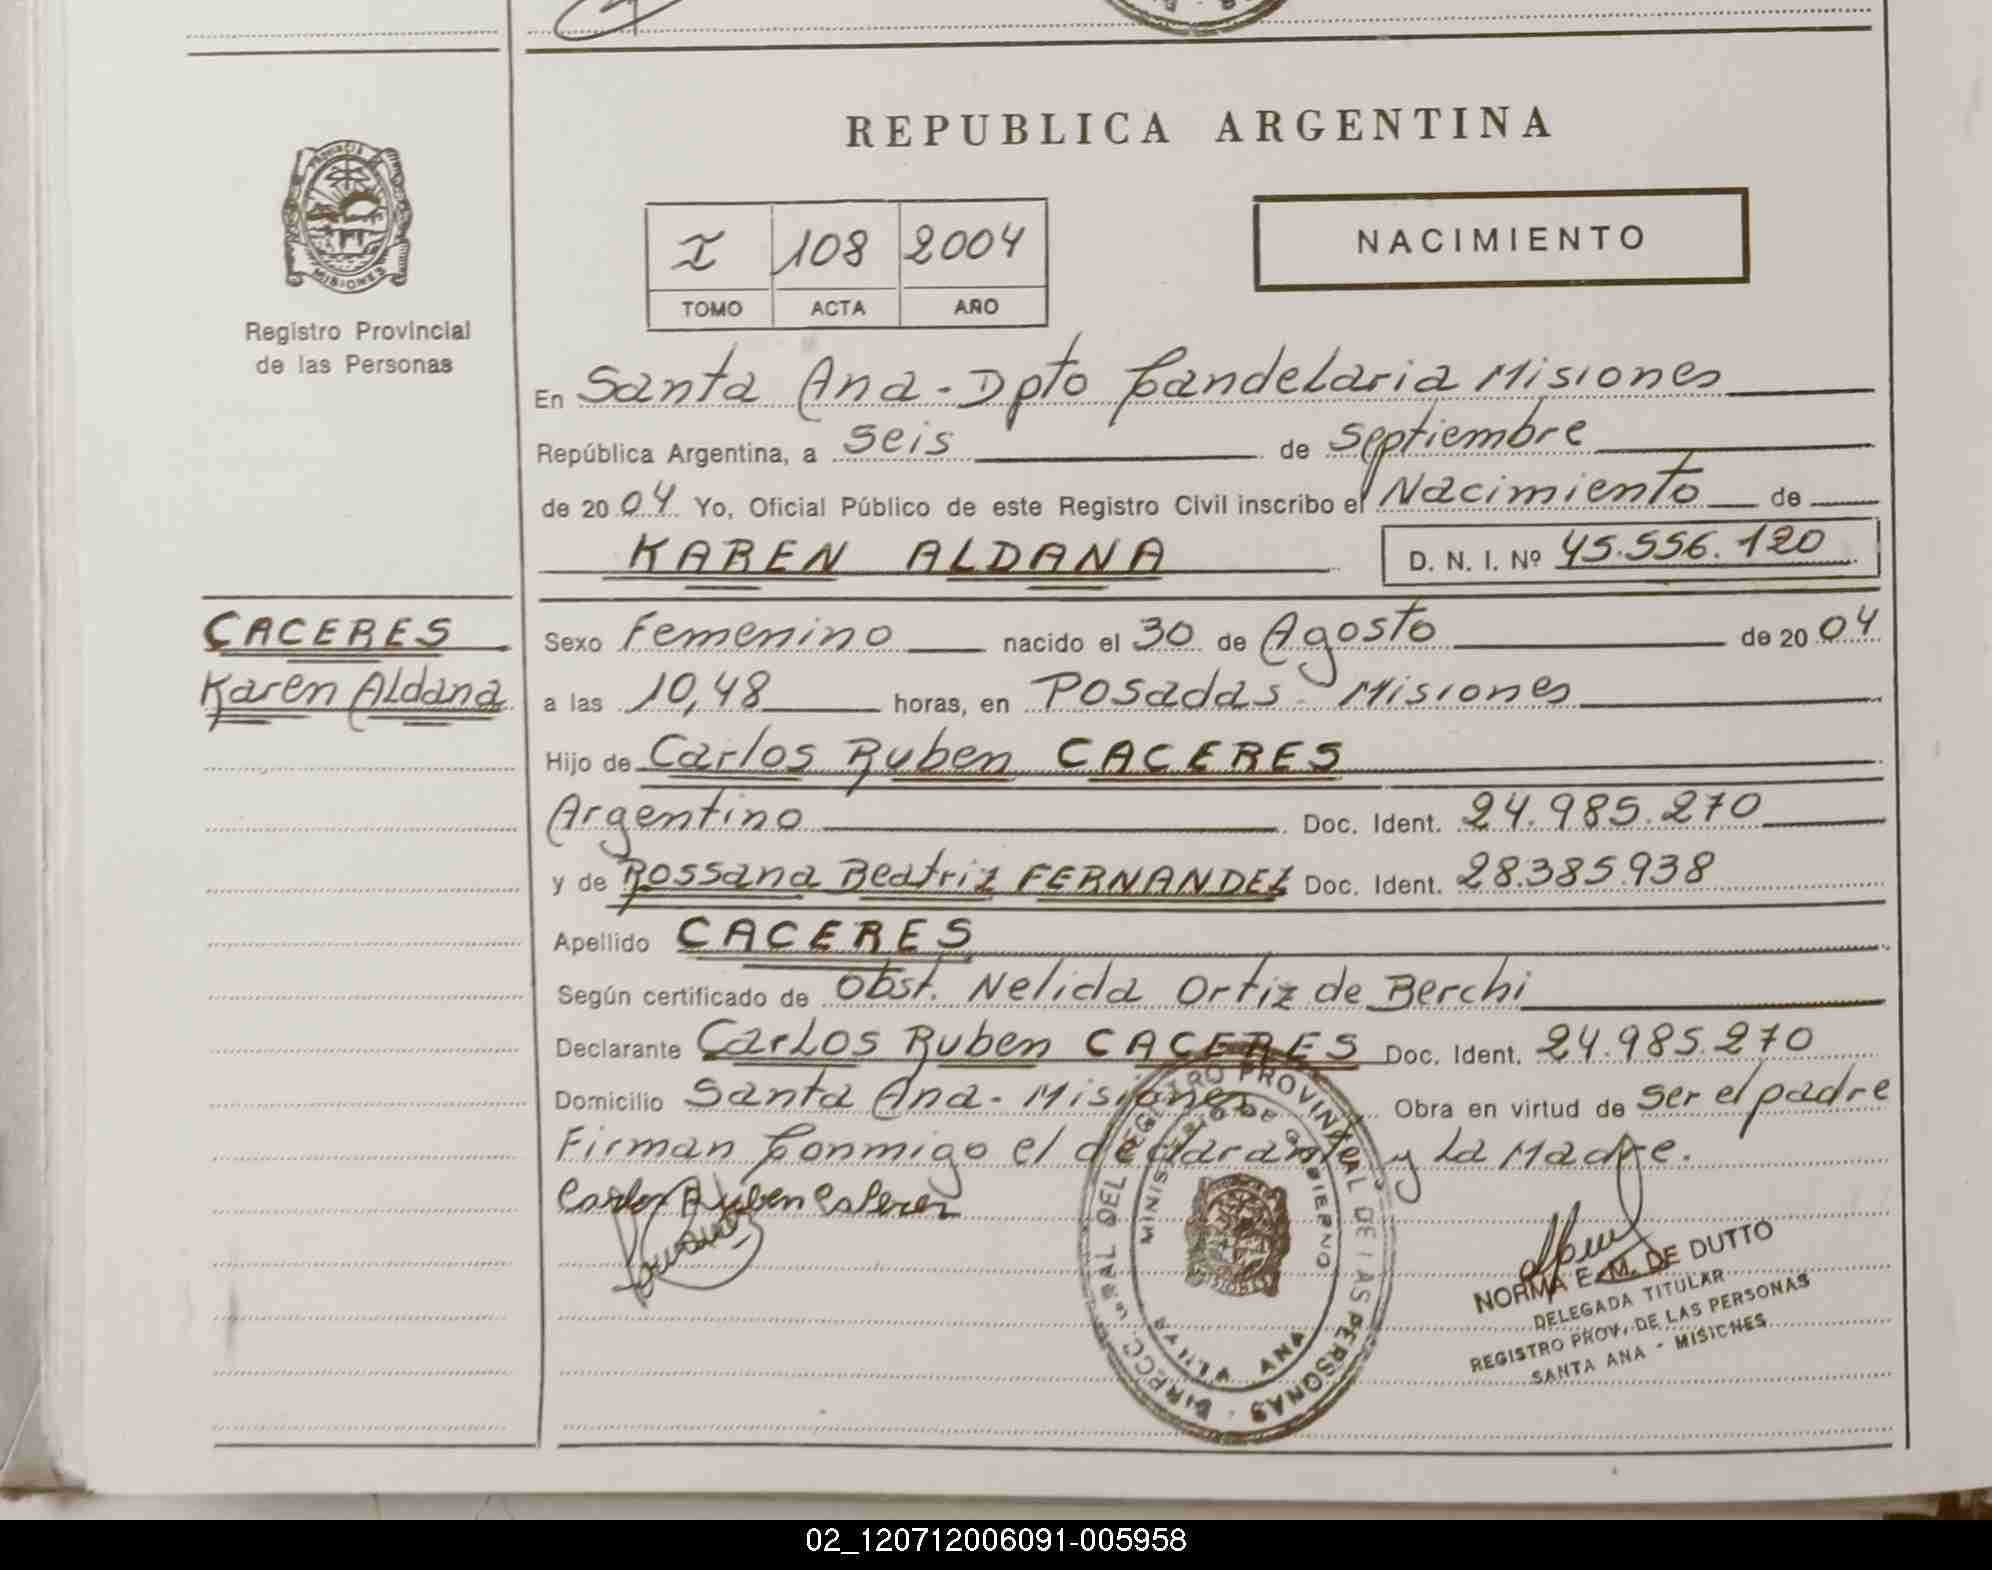 REPUBLICA ARGENTINA
PROVINCIA
MISIONES
Registro Provincial
de las Personas
I 108 2004
TOMO ACTA AÑO
NACIMIENTO
En Santa Ana - Dpto Candelaria Misiones
República Argentina, a seis de Septiembre
de 2004 Yo, Oficial Público de este Registro Civil inscribo el Nacimiento de
KAREN ALDANA D. N. I. Nº 45.556.120
CACERES
Karen Aldana
Sexo Femenino nacido el 30 de Agosto de 2004
a las 10,48 horas, en Posadas - Misiones
Hijo de Carlos Ruben CACERES
Argentino Doc. Ident. 24.985.270
y de Rossana Beatriz FERNANDEZ Doc. Ident. 28.385.938
Apellido CACERES
Según certificado de Obst. Nelida Ortiz de Berchi
Declarante Carlos Ruben CACERES Doc. Ident. 24.985.270
Domicilio Santa Ana - Misiones Obra en virtud de ser el padre
Firman Conmigo el declarante y La Madre.
Carlos Ruben
REGISTRO PROVINCIAL DE LAS PERSONAS
MINISTERIO DE GOBIERNO
SANTA ANA
NORMA E. M. DE DUTTO
DELEGADA TITULAR
REGISTRO PROV. DE LAS PERSONAS
SANTA ANA - MISIONES
02_120712006091-005958